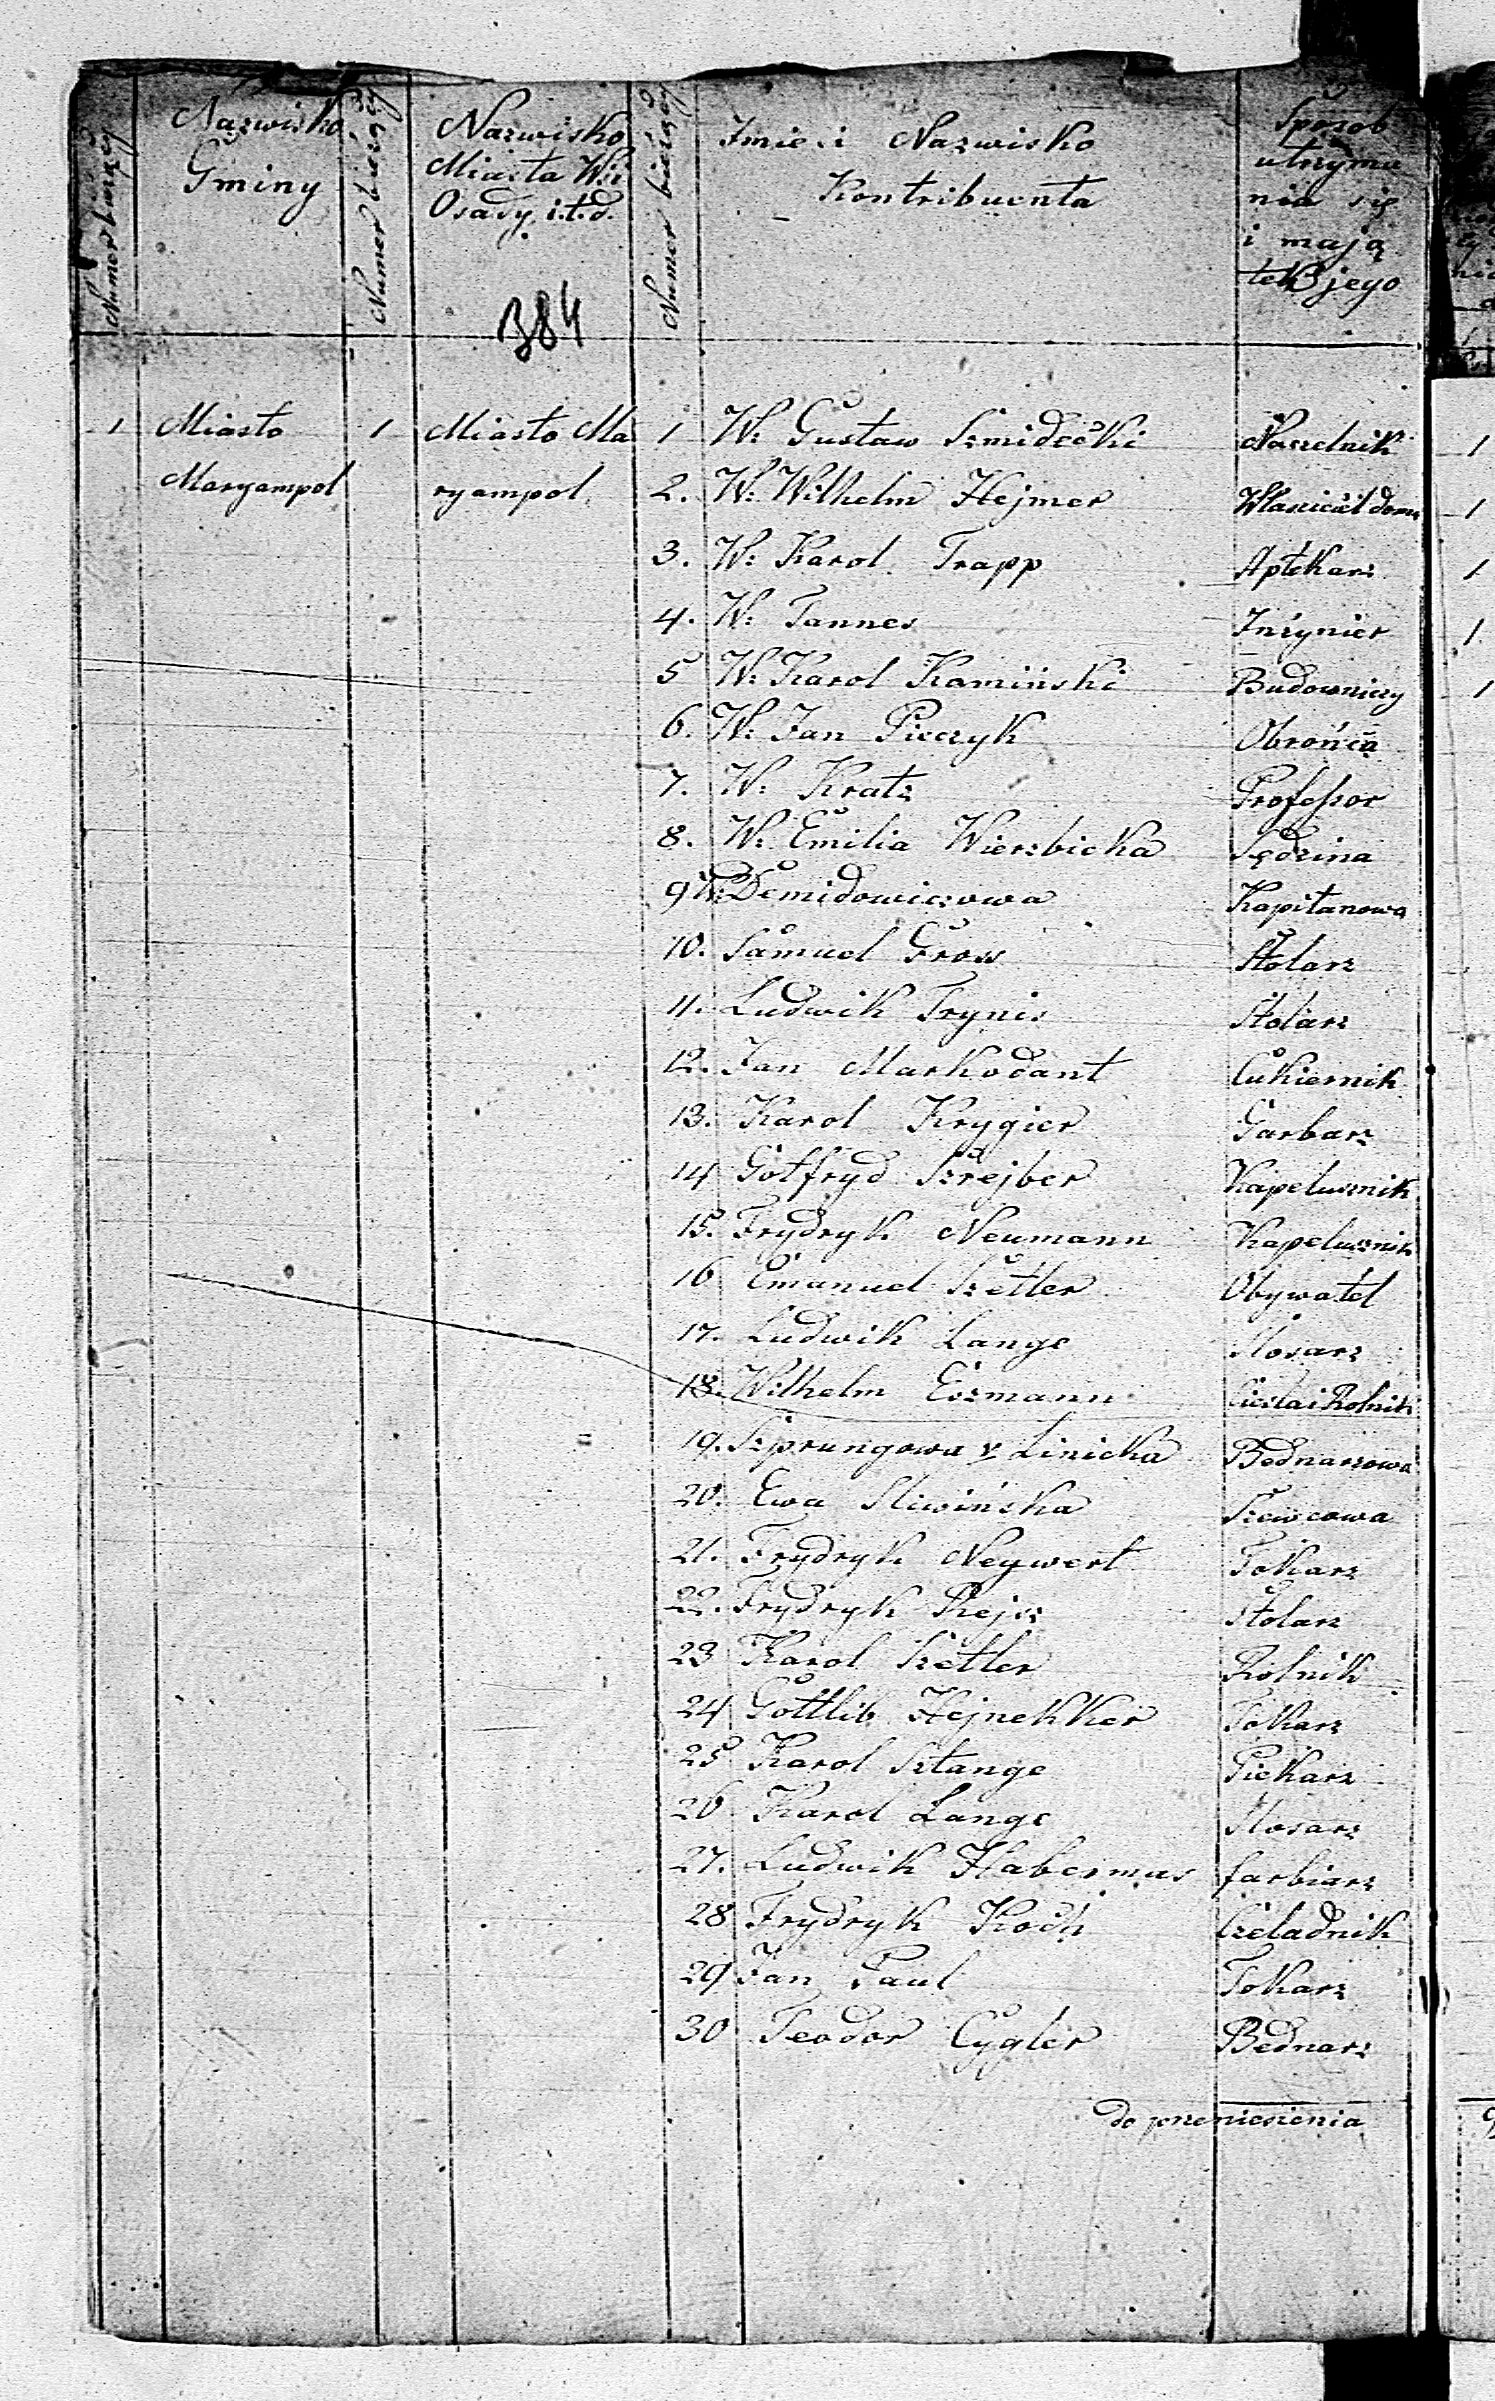 Numer bieżący
Nazwisko
Gminy
Numer bieżący
Nazwisko
Miasta Wsi
Osady i.t.d.
384
Numer bieżący
Imie i Nazwisko
Kontribuenta
Sposob
utrzyma
nia się
i mają
tek jego
1 Miasto 1 Miasto Ma 1 W: Gustaw Szmidecki Naczelnik 1
Maryampol ryampol 2. W: Wilhelm Hejmer Właściciel domu 1
3. W: Karol Trapp Aptekarz 1
4. W: Tannes Inżynier 1
5 W: Karol Kamiński Budowniczy 1
6. W: Jan Pieczyk Obrońca
7. W: Kratz Professor
8. W: Emilia Wierzbicka Sędzina
9 W: Demidowiczowa Kapitanowa
10. Samuel Gross Stolarz
11. Ludwik Trynis Stolarz
12. Jan Markodant Cukiernik
13. Karol Krygier Garbarz
14 Gotfryd Szrejber Kapelusznik
15. Frydryk Neumann Kapelusznik
16 Emanuel Szetler Obywatel
17. Ludwik Lange Slosarz
18. Wilhelm Eszmann Ciesla i Rolnik
19. Szprungowa v Linicka Bednarzowa
20. Ewa Sliwińska Szewcowa
21. Frydryk Neywert Tokarz
22. Frydryk Rejsz Stolarz
23 Karol Szetler Rolnik
24 Gottlib Hejnekker Tokarz
25 Karol Sztange Piekarz
26 Karol Lange Slosarz
27. Ludwik Habermus farbiarz
28 Frydryk Koch Czeladnik
29 Jan Paul Tokarz
30 Teodor Cygler Bednarz
do przeniesienia